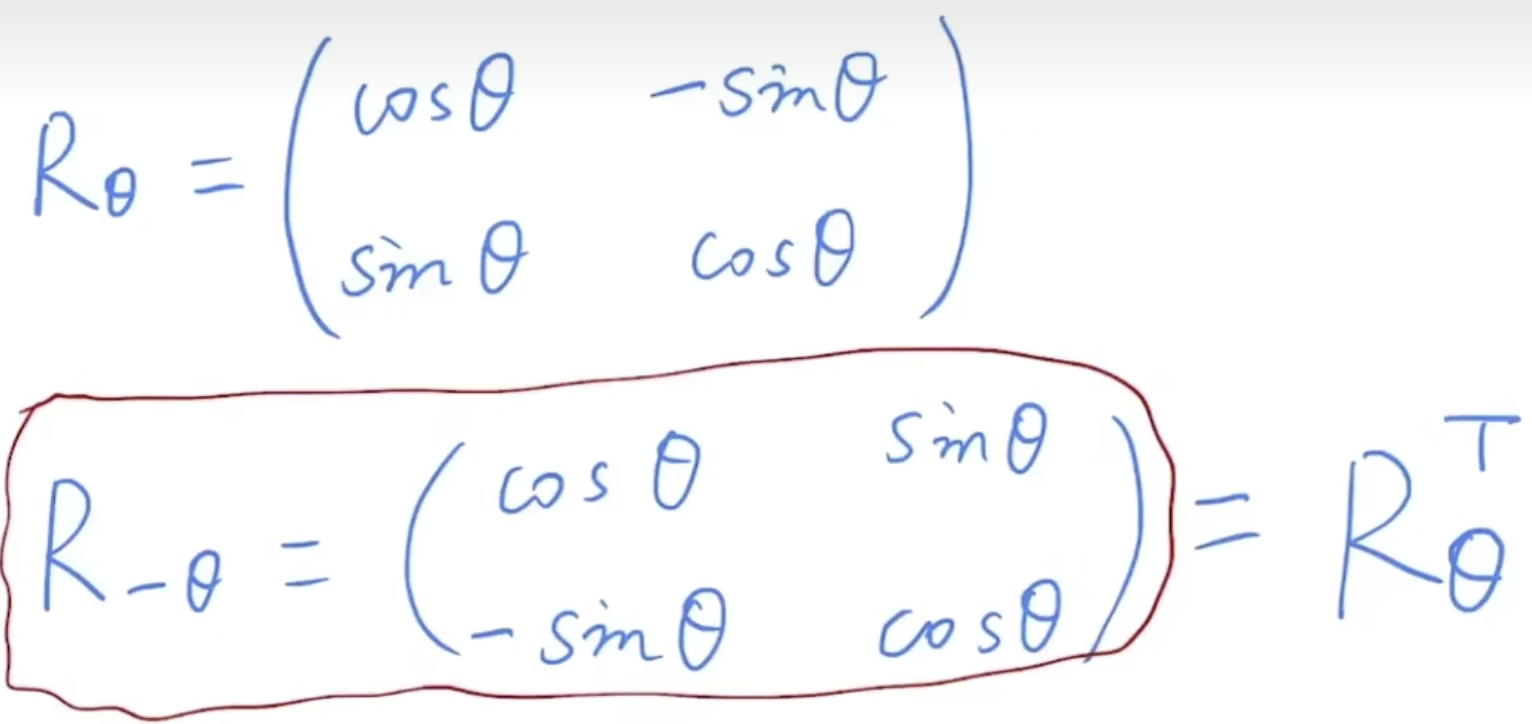 R_θ = ( cosθ  -sinθ
sinθ  cosθ )
R_-θ = ( cosθ  sinθ
-sinθ  cosθ ) = R_θ^T